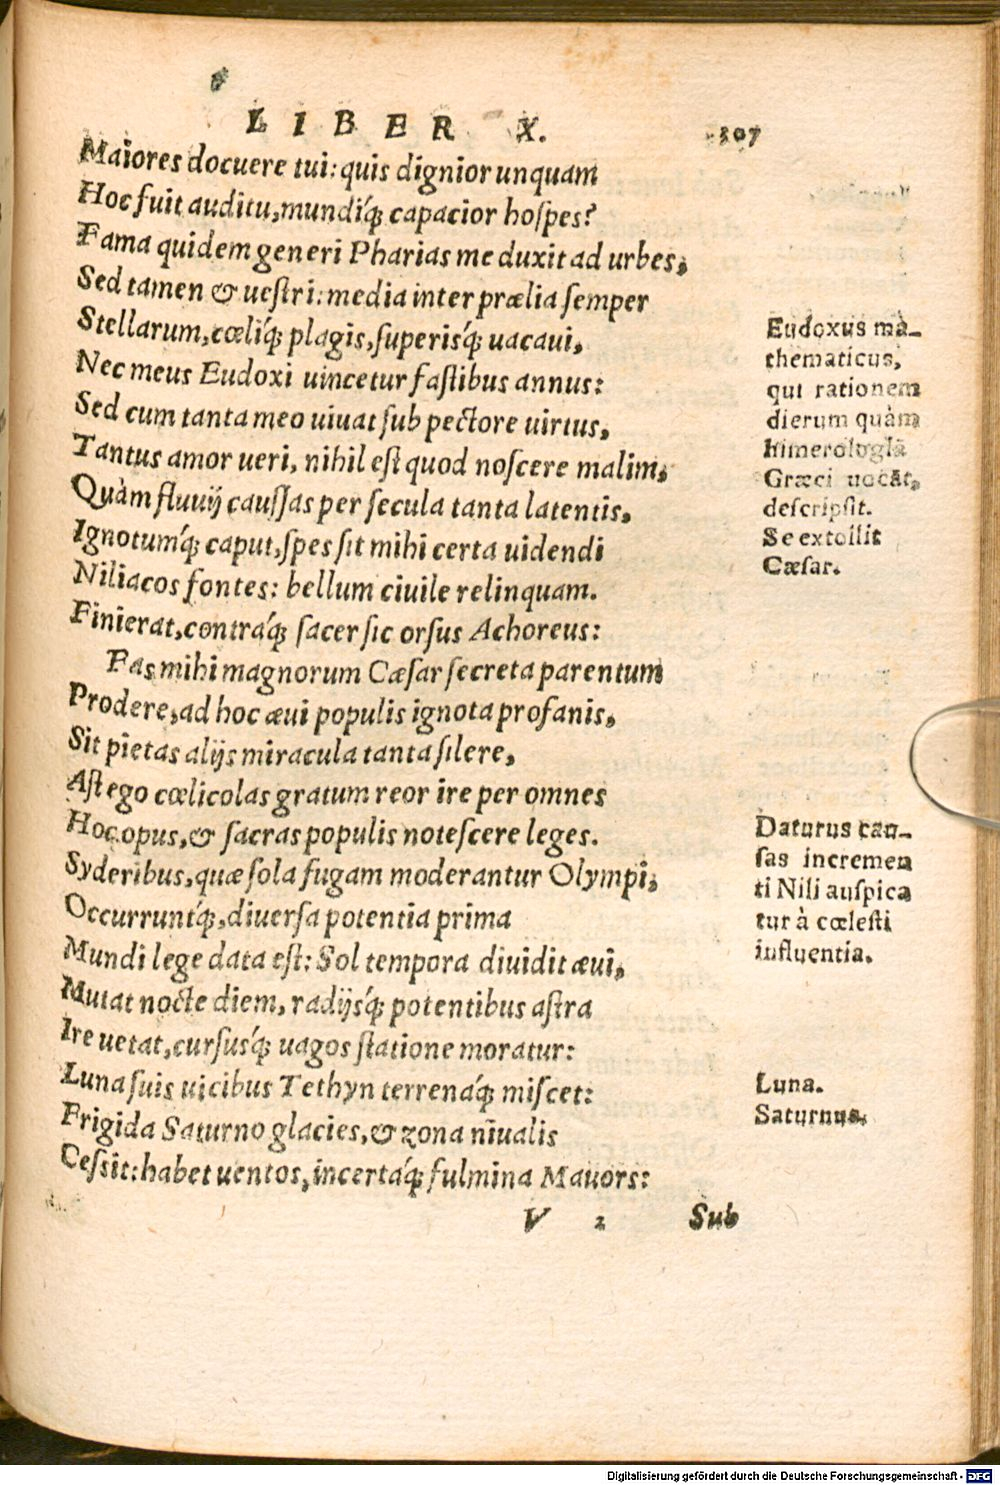 LIBER X. 307
Maiores docuere tui: quis dignior unquam
Hoc fuit auditu, mundíq́; capacior hospes?
Fama quidem generi Pharias me duxit ad urbes,
Sed tamen & uestri: media inter prælia semper
Stellarum, cœlíq́; plagis, superisq́; uacaui,
Nec meus Eudoxi uincetur fastibus annus:
Sed cum tanta meo uiuat sub pectore uirtus,
Tantus amor ueri, nihil est quod noscere malim,
Quàm fluuij caussas per secula tanta latentis,
Ignotumq́; caput, spes sit mihi certa uidendi
Niliacos fontes: bellum ciuile relinquam.
Finierat, contráq́; sacer sic orsus Achoreus:
Fas mihi magnorum Cæsar secreta parentum
Prodere, ad hoc æui populis ignota profanis,
Sit pietas alijs miracula tanta silere,
Ast ego cœlicolas gratum reor ire per omnes
Hoc opus, & sacras populis notescere leges.
Syderibus, quæ sola fugam moderantur Olympi,
Occurruntq́;, diuersa potentia prima
Mundi lege data est: Sol tempora diuidit æui,
Mutat nocte diem, radijsq́; potentibus astra
Ire uetat, cursusq́; uagos statione moratur:
Luna suis uicibus Tethyn terrenáq́; miscet:
Frigida Saturno glacies, & zona niualis
Cessit: habet uentos, incertáq́; fulmina Mauors:
V 2 Sub
Eudoxus ma-
thematicus,
qui rationem
dierum quàm
himerologiã
Græci uocãt,
descripsit.
Se extollit
Cæsar.
Daturus cau-
sas incremen
ti Nili auspica
tur à cœlesti
influentia.
Luna.
Saturnus.
Digitalisierung gefördert durch die Deutsche Forschungsgemeinschaft - DFG